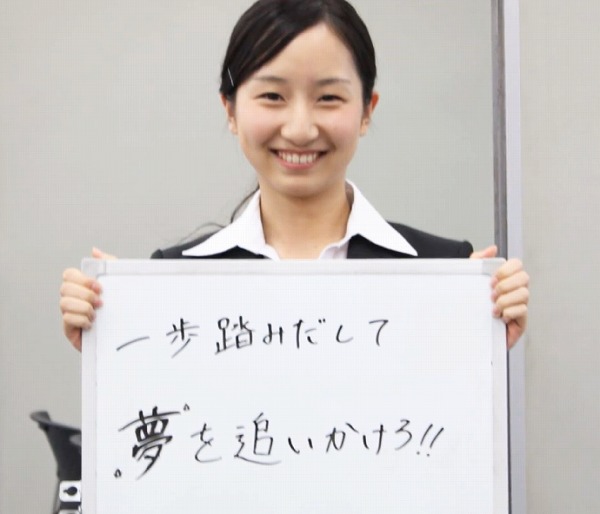 一歩踏みだして
"夢"を追いかけろ!!